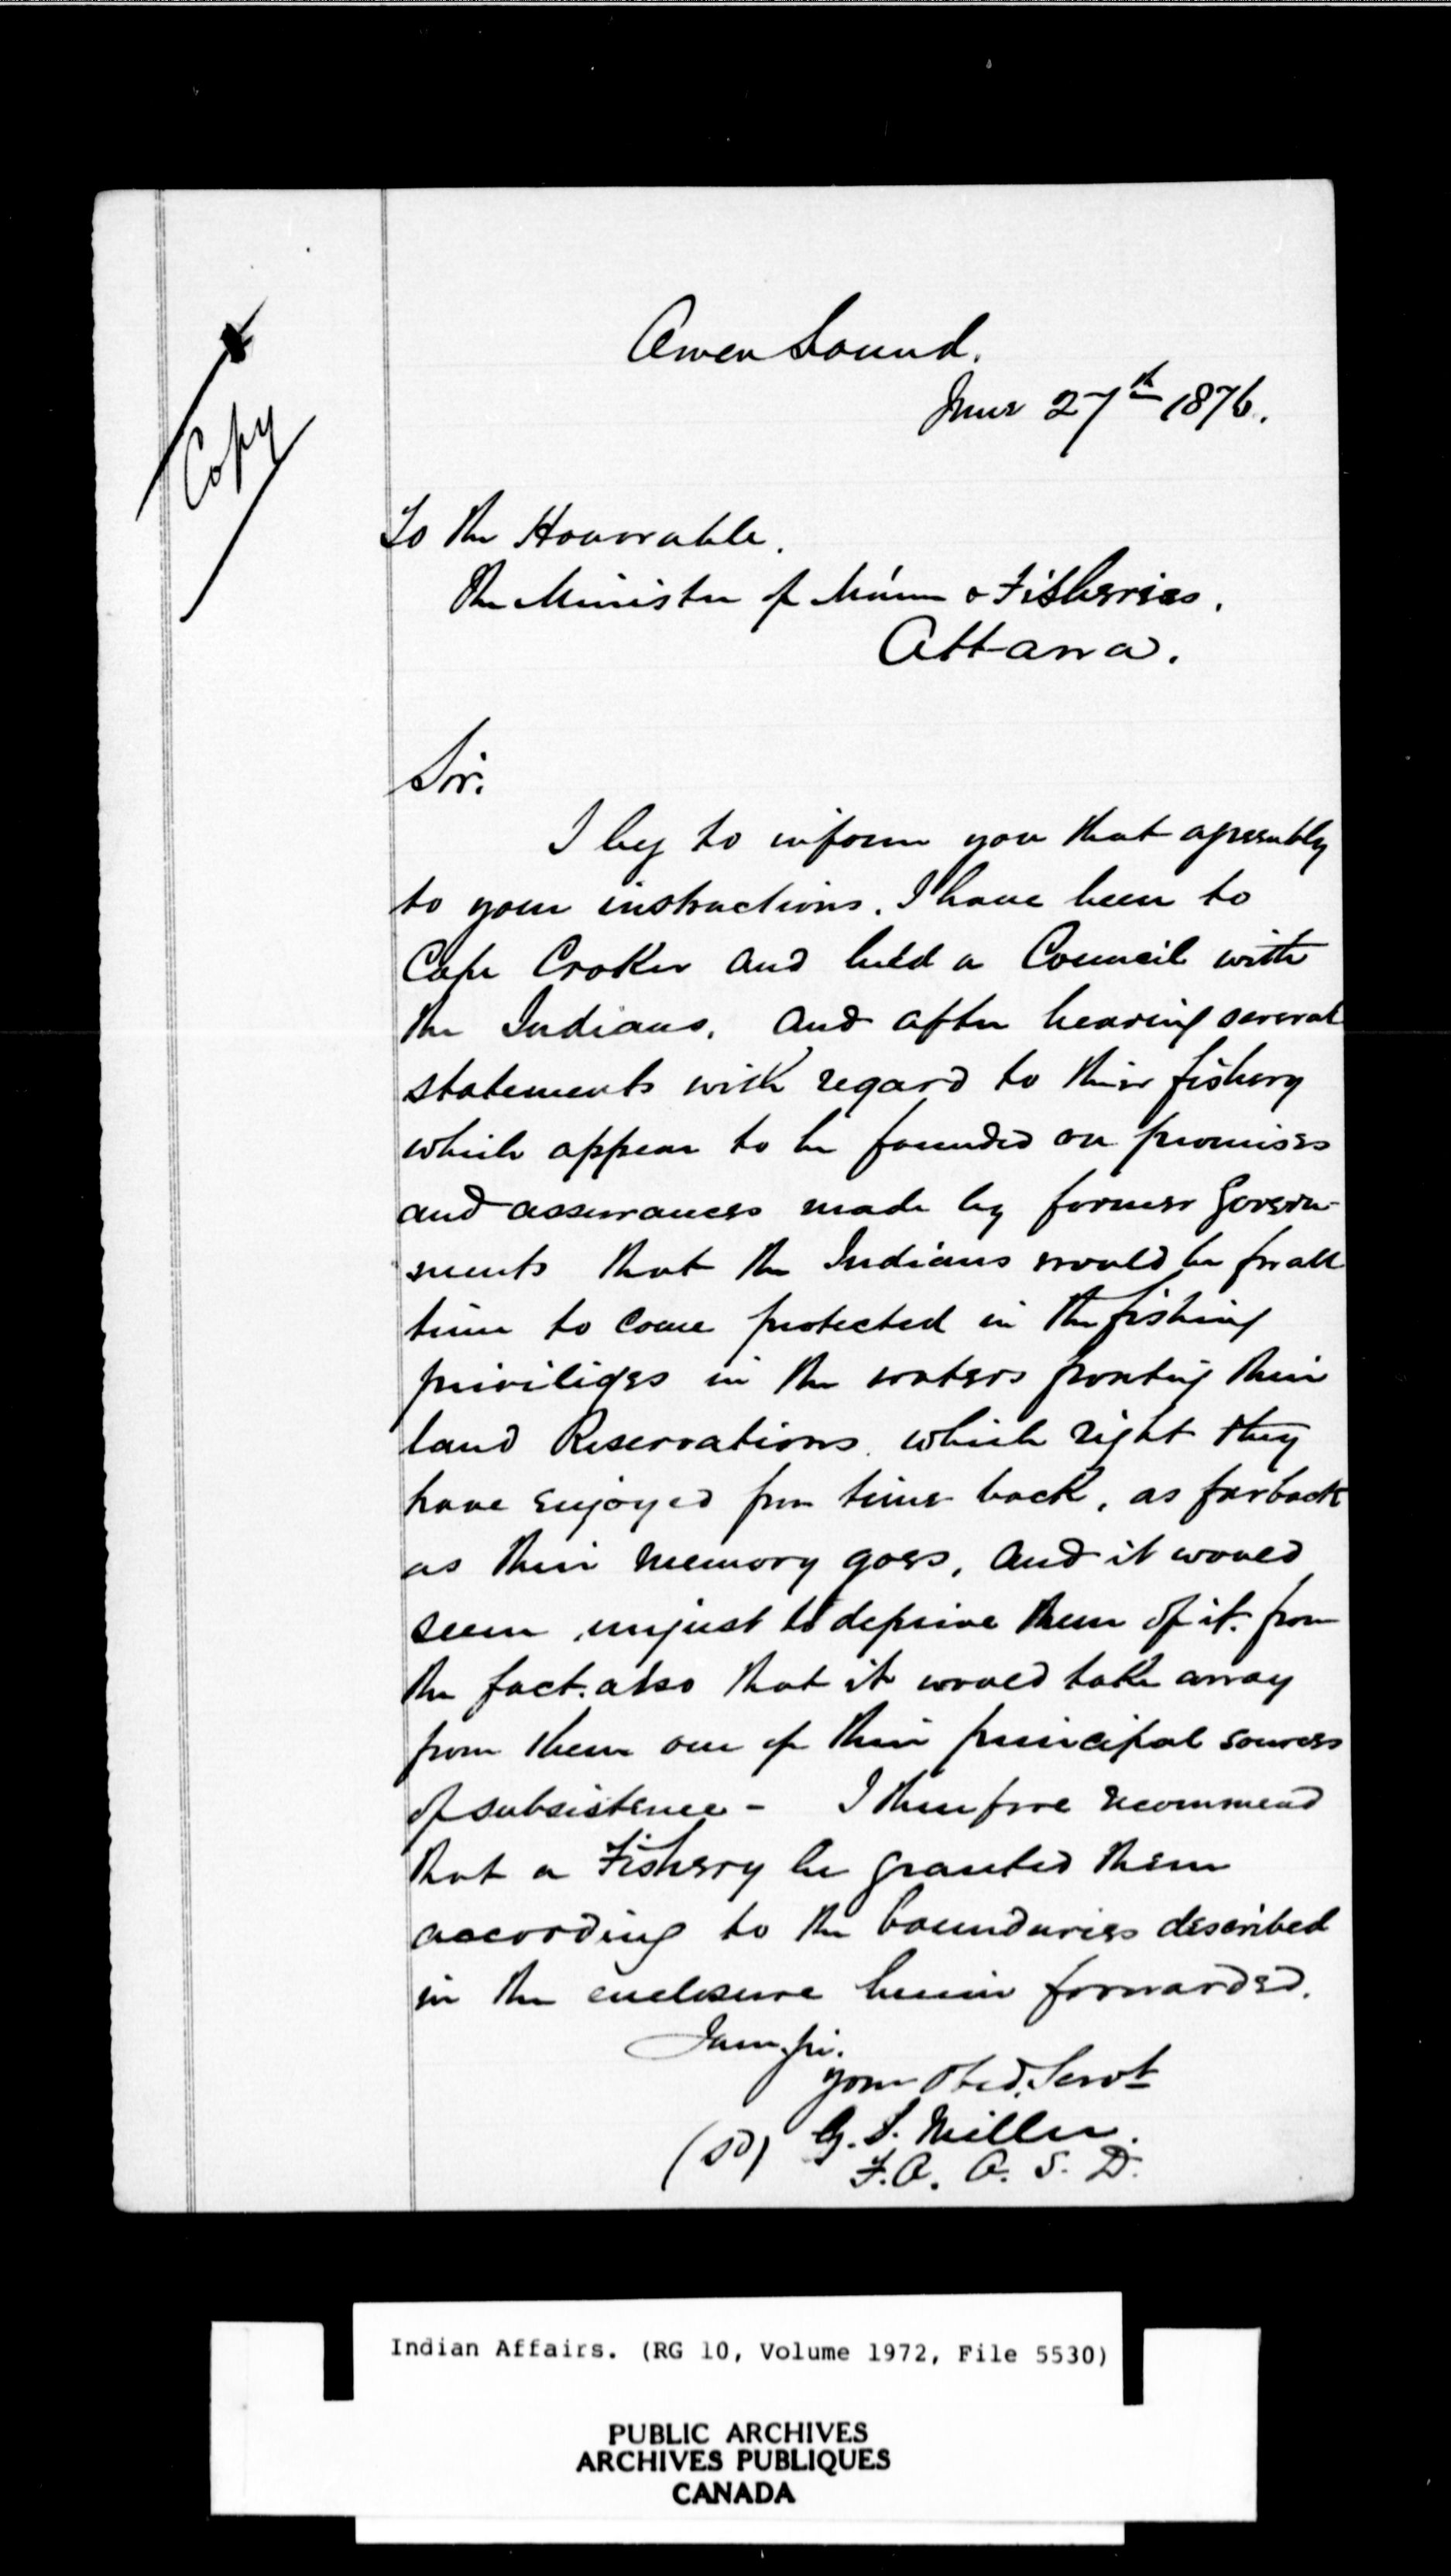 Copy
Owen Sound.
June 27th 1876.
To the Honorable.
The Minister of Marine & Fisheries.
Ottawa.
Sir.
I beg to inform you that agreeably
to your instructions. I have been to
Cape Croker and held a Council with
the Indians. and after hearing several
statements with regard to their fishery
which appear to be founded on promises
and assurances made by former Govern-
ments that the Indians would be for all
time to come protected in the fishing
priviliges in the waters fronting their
land Reservations. which right they
have enjoyed from time back, as far back
as their memory goes, and it would
seem unjust to deprive them of it. from
the fact. also that it would take away
from them one of their principal sources
of subsistence - I therefore recommend
that a Fishery be granted them
according to the boundaries described
in the enclosure herein forwarded.
I am Sir.
your Obed. Servt
(SD) G. S. Miller.
F.O. O. S. D.
Indian Affairs. (RG 10, Volume 1972, File 5530)
PUBLIC ARCHIVES
ARCHIVES PUBLIQUES
CANADA